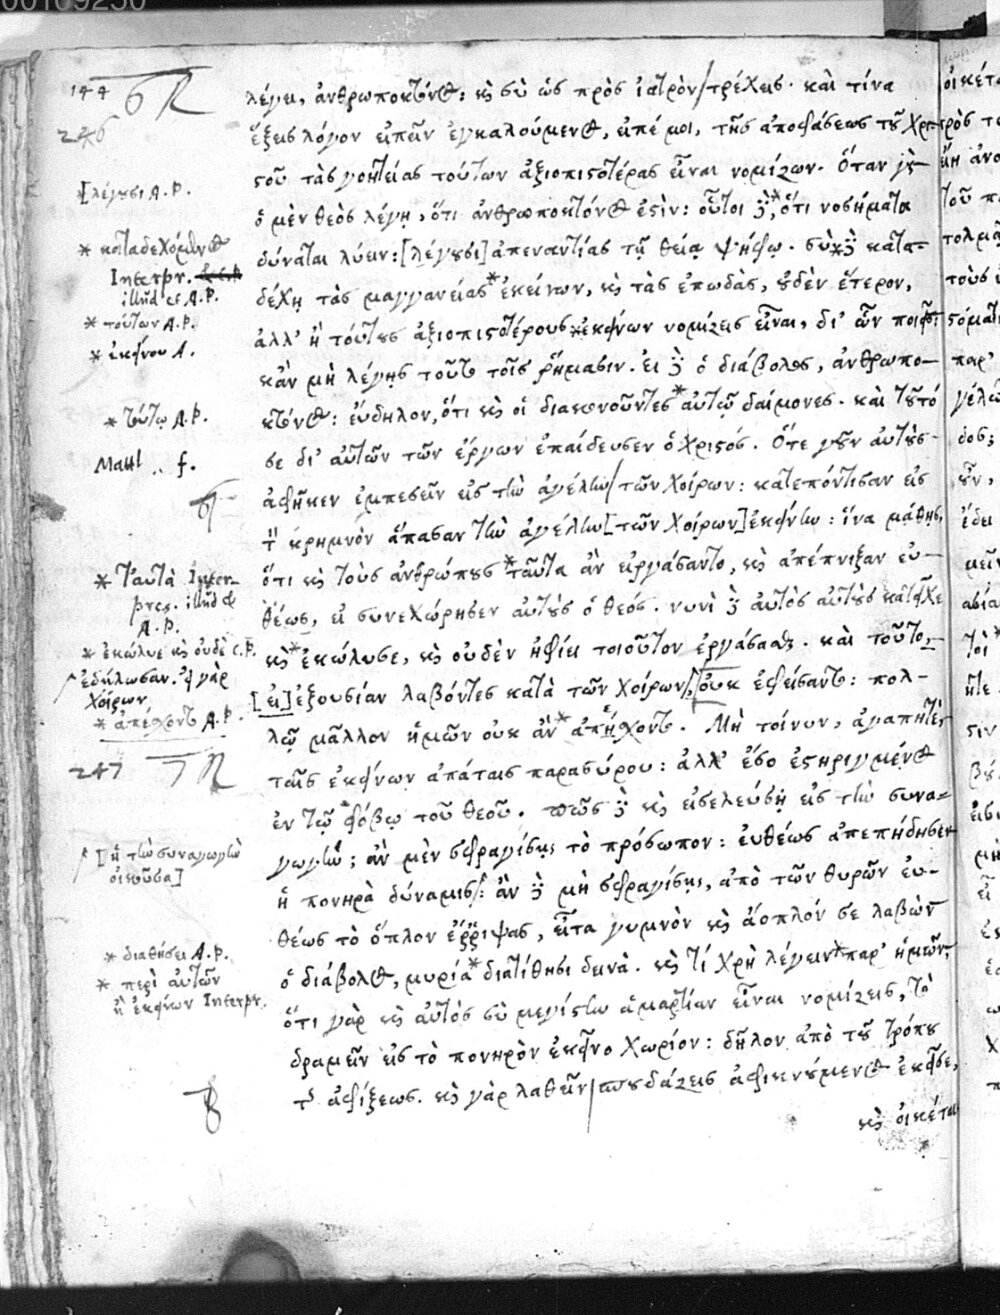 144
246
λέγει, ἀνθρωποκτόνος· κὶ σὺ ὡς πρὸς ἰατρὸν/τρέχεις· καὶ τίνα
ἕξεις λόγον εἰπεῖν ἐγκαλούμενος, εἰπέ μοι, τῆς ἀποφάσεως τοῦ Χρι-
στοῦ τὰς γοητείας τούτων ἀξιοπιστοτέρας εἶναι νομίζων. Ὅταν γὰρ
ὁ μὲν θεὸς λέγῃ, ὅτι ἀνθρωποκτόνος ἐστίν: οὗτοι δὲ,* ὅτι νοσήματα
δύναται λύειν: [λέγουσι] ἀπεναντίας τῇ θείᾳ ψήφῳ. σὺ*δὲ κατα-
δέχῃ τὰς μαγγανείας*ἐκείνων, κὶ τὰς ἐπωδὰς, οὐδὲν ἕτερον,
ἀλλ' ἢ τούτους ἀξιοπιστοτέρους*ἐκείνων νομίζεις εἶναι, δι' ὧν ποιεῖς:
κἂν μὴ λέγῃς τοῦτο τοῖς ῥήμασιν. εἰ δὲ ὁ διάβολος, ἀνθρωπο-
κτόνος: εὔδηλον, ὅτι κὶ οἱ διακονοῦντες*αὐτῷ δαίμονες. καὶ τοῦτό
σε δι' αὐτῶν τῶν ἔργων ἐπαίδευσεν ὁ Χριστός. Ὅτε γοῦν αὐτοὺς
ἀφῆκεν ἐμπεσεῖν εἰς τὴν ἀγέλην/τῶν Χοίρων: κατεπόντισαν εἰς
τὸν κρημνὸν ἅπασαν τὴν ἀγέλην[τῶν Χοίρων]ἐκείνην: ἵνα μάθῃς,
ὅτι κὶ τοὺς ἀνθρώπους*ταῦτα ἂν εἰργάσαντο, κὶ ἀπέπνιξαν εὐ-
θέως, εἰ συνεχώρησεν αὐτοὺς ὁ θεός. νυνὶ δὲ αὐτὸς αὐτοὺς κατεῖχε
κὶ*ἐκώλυσε, κὶ οὐδὲν ἠφίει τοιοῦτον ἐργάσασθαι. καὶ τοῦτο,
[εἰ]ἐξουσίαν λαβόντες κατὰ τῶν Χοίρων/,[οὐκ ἐφείσαντο: πολ-
λῷ μᾶλλον ἡμῶν οὐκ ἂν*ἀπήχοντο. Μὴ τοίνυν, ἀγαπητὲ,
ταῖς ἐκείνων ἀπάταις παρασύρου: ἀλλ' ἔσο ἐστηριγμένος
ἐν τῷ φόβῳ τοῦ θεοῦ. πῶς δὲ κὶ εἰσελεύσῃ εἰς τὴν συνα-
γωγήν; ἂν μὲν σφραγίσῃς τὸ πρόσωπον: εὐθέως ἀπεπήδησεν
ἡ πονηρὰ δύναμις/: ἂν δὲ μὴ σφραγίσῃς, ἀπὸ τῶν θυρῶν εὐ-
θέως τὸ ὅπλον ἔρριψας, εἶτα γυμνὸν κὶ ἄοπλόν σε λαβὼν
ὁ διάβολος, μυρία*διατίθησι δεινά. κὶ τί χρὴ λέγειν*παρ' ἡμῶν;
ὅτι γὰρ κὶ αὐτὸς σὺ μεγίστην ἁμαρτίαν εἶναι νομίζεις, τὸ
δραμεῖν εἰς τὸ πονηρὸν ἐκεῖνο Χωρίον: δῆλον ἀπὸ τοῦ τρόπου
τῆς ἀφίξεως. κὶ γὰρ λαθεῖν/σπουδάζεις ἀφικνούμενος ἐκεῖσε,
κὶ οἰκέτας
[λέγουσι A.P.
* καταδεχόμενος
Interpr.
illud A.P.
* τούτων A.P.
* ἐκείνου A.
* τούτῳ A.P.
Matth. .. f.
* Ταυτὰ Inter-
pres. illud
A.P.
* ἐκώλυε κὶ οὐδὲ c.P.
ἐδήλωσαν. οἱ γὰρ
Χοίρων
* ἀπέσχοντο A.P.
247
[ἡ τὴν συναγωγὴν
οἰκοῦσα]
* διαθήσει A.P.
* περὶ αὐτῶν
ἢ ἐκείνων Interpr.